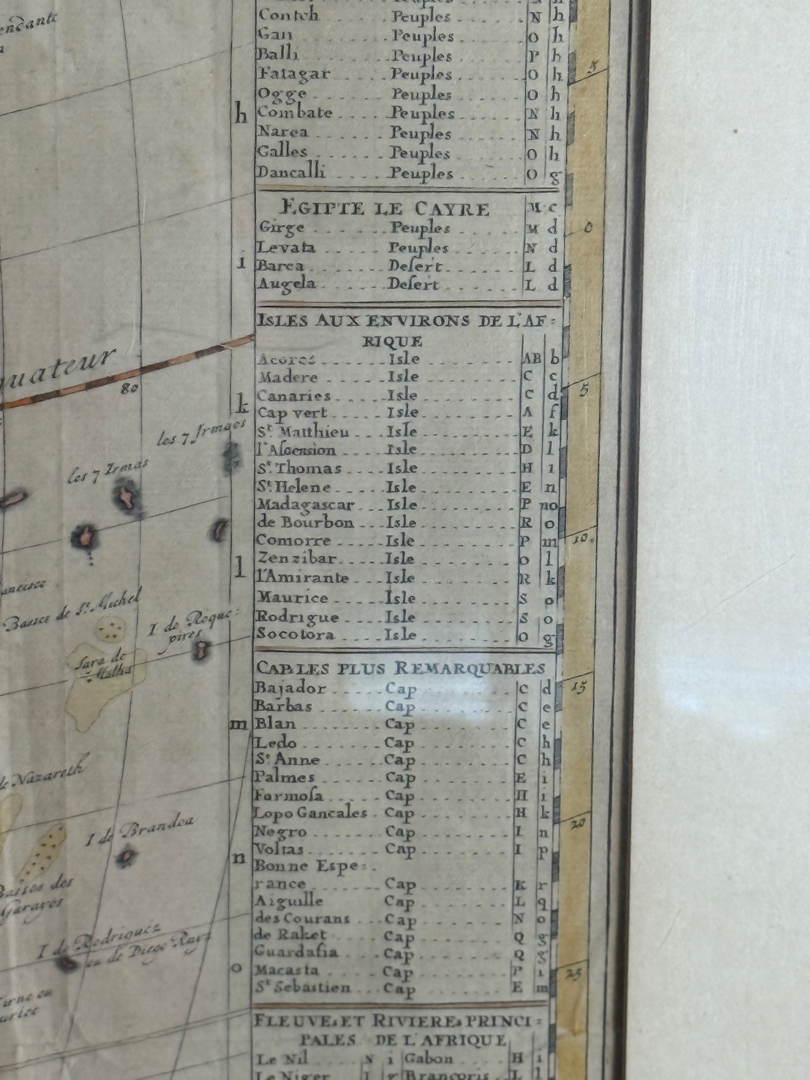 Conteh Peuples N h
Gan Peuples O h
Balli Peuples P h
Fatagar Peuples O h
Ogge Peuples O h
Combate Peuples N h
Narea Peuples N h
Galles Peuples O h
Dancalli Peuples O g
EGIPTE LE CAYRE M c
Girge Peuples M d
Levata Peuples N d
Barca Desert L d
Augela Desert L d
ISLES AUX ENVIRONS DE L'AF=
RIQUE
Acores Isle AB b
Madere Isle C c
Canaries Isle C d
Cap vert Isle A f
St. Matthieu Isle E k
l'Ascension Isle D l
St. Thomas Isle H i
St. Helene Isle E n
Madagascar Isle P no
de Bourbon Isle R o
Comorre Isle P m
Zenzibar Isle O l
l'Amirante Isle R k
Maurice Isle S o
Rodrigue Isle S o
Socotora Isle O g
CAP LES PLUS REMARQUABLES
Bajador Cap C d
Barbas Cap C e
Blan Cap C e
Ledo Cap C h
St. Anne Cap C h
Palmes Cap E i
Formosa Cap H i
Lopo Gancales Cap H k
Negro Cap I n
Voltas Cap I p
Bonne Espe:
rance Cap K r
Aiguille Cap L q
des Courans Cap N o
de Raket Cap Q g
Guardafia Cap Q g
Macasta Cap P i
St. Sebastien Cap E m
FLEUVE, ET RIVIERE, PRINCI=
PALES DE L'AFRIQUE
Le Nil N i Gabon H i
Le Niger
h
i
k
l
m
n
o
5
0
5
10.
15
20
25
80
les 7 Irmaos
les 7 Irmas
Basses de St. Michel
I de Roque:
pires
Sara de
Malha
de Nazareth
I de Brandoa
Basses des
Garayes
I de Rodriguez
ou de Diego Ruys